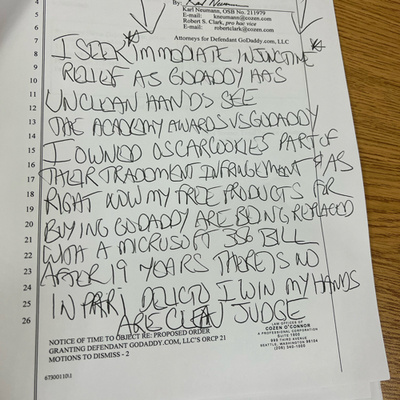 4
5
6
7
8
9
10
11
12
13
14
15
16
17
18
19
20
21
22
23
24
25
26
By: Karl Neumann
Karl Neumann, OSB No. 211979
E-mail: kneumann@cozen.com
Robert S. Clark, pro hac vice
E-mail: robertclark@cozen.com
Attorneys for Defendant GoDaddy.com, LLC
I SEEK IMMEDIATE INJUNCTIVE
RELIEF AS GODADDY HAS
UNCLEAN HANDS SEE
THE ACADEMY AWARDS VS GODADDY
I OWNED OSCARCOOKIES PART OF
THEIR TRADEMENT INFRINGEMENT & AS
RIGHT NOW MY FREE PRODUCTS FOR
BUYING GODADDY ARE BEING REPLACED
WITH A MICROSOFT 386 BILL
AFTER 19 YEARS THERE IS NO
IN PARI DELICTO I WIN MY HANDS
ARE CLEAN JUDGE
NOTICE OF TIME TO OBJECT RE: PROPOSED ORDER
GRANTING DEFENDANT GODADDY.COM, LLC'S ORCP 21
MOTIONS TO DISMISS - 2
LAW OFFICES OF
COZEN O'CONNOR
A PROFESSIONAL CORPORATION
SUITE 1900
999 THIRD AVENUE
SEATTLE, WASHINGTON 98104
(206) 340-1000